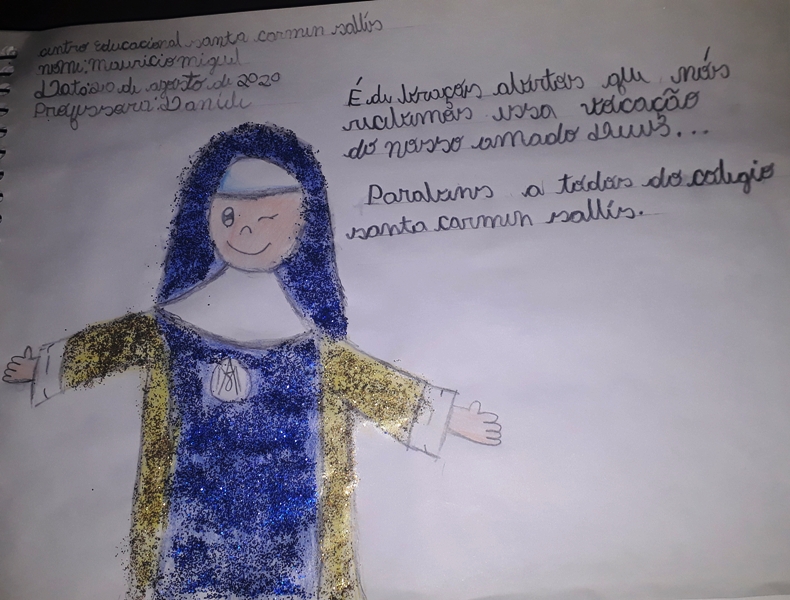 centro Educacional santa carmen sallés
nome: mauricio miguel
Data: 20 de agosto de 2020
Professora: Daniele
É de braços abertos que nós
recebemos essa vocação
do nosso amado Deus...
Parabens a todos do colegio
santa carmen sallés.